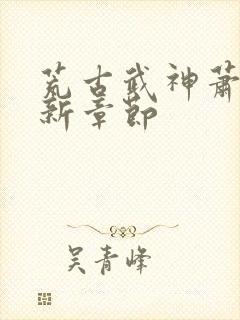 荒古武神萧
新章节
吴青峰